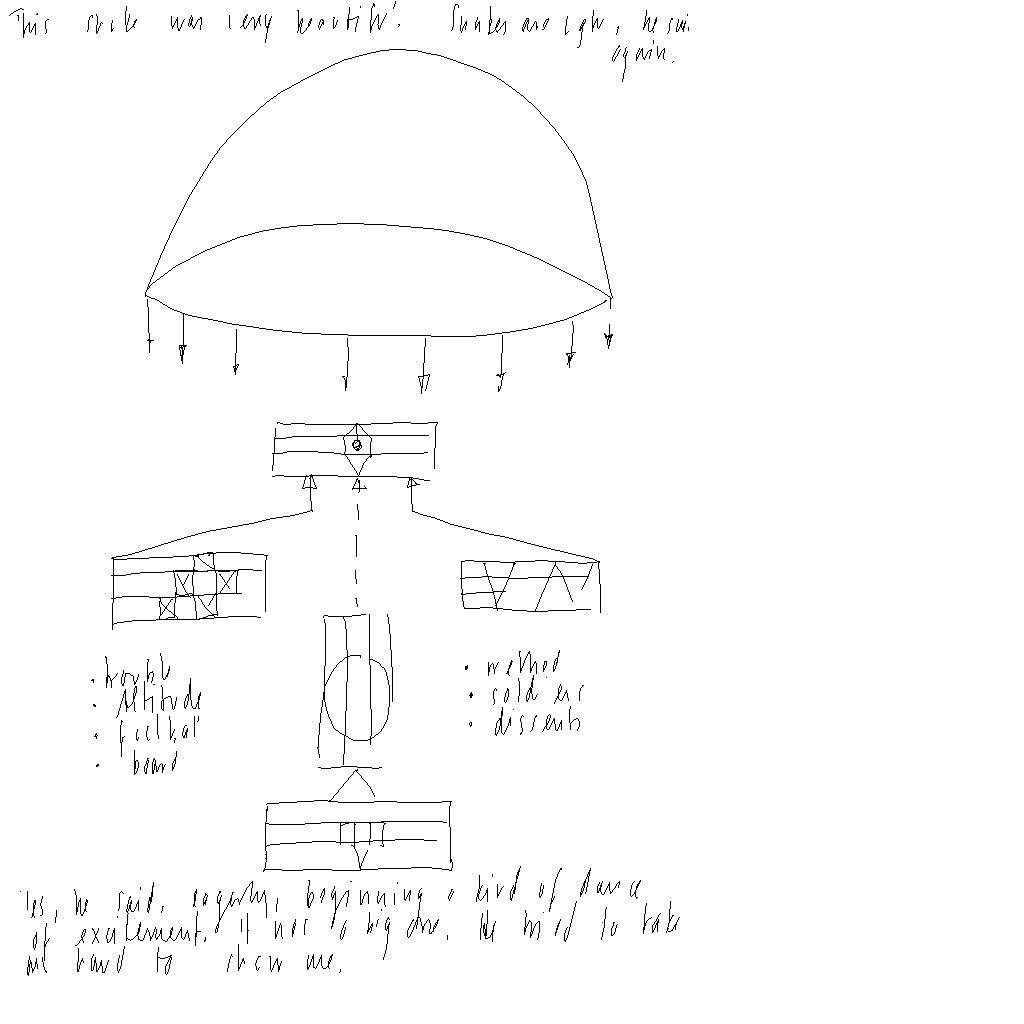 This snake was very beautiful. Snakes are ugly, he said
again.
• trouble
• Altitude
• football
• board
• method
• soldiers
• dissents
Yes, he said, eagerly, beginning a kind of dance
of excitement. It was a big one. He tried to take
my hand to show me.